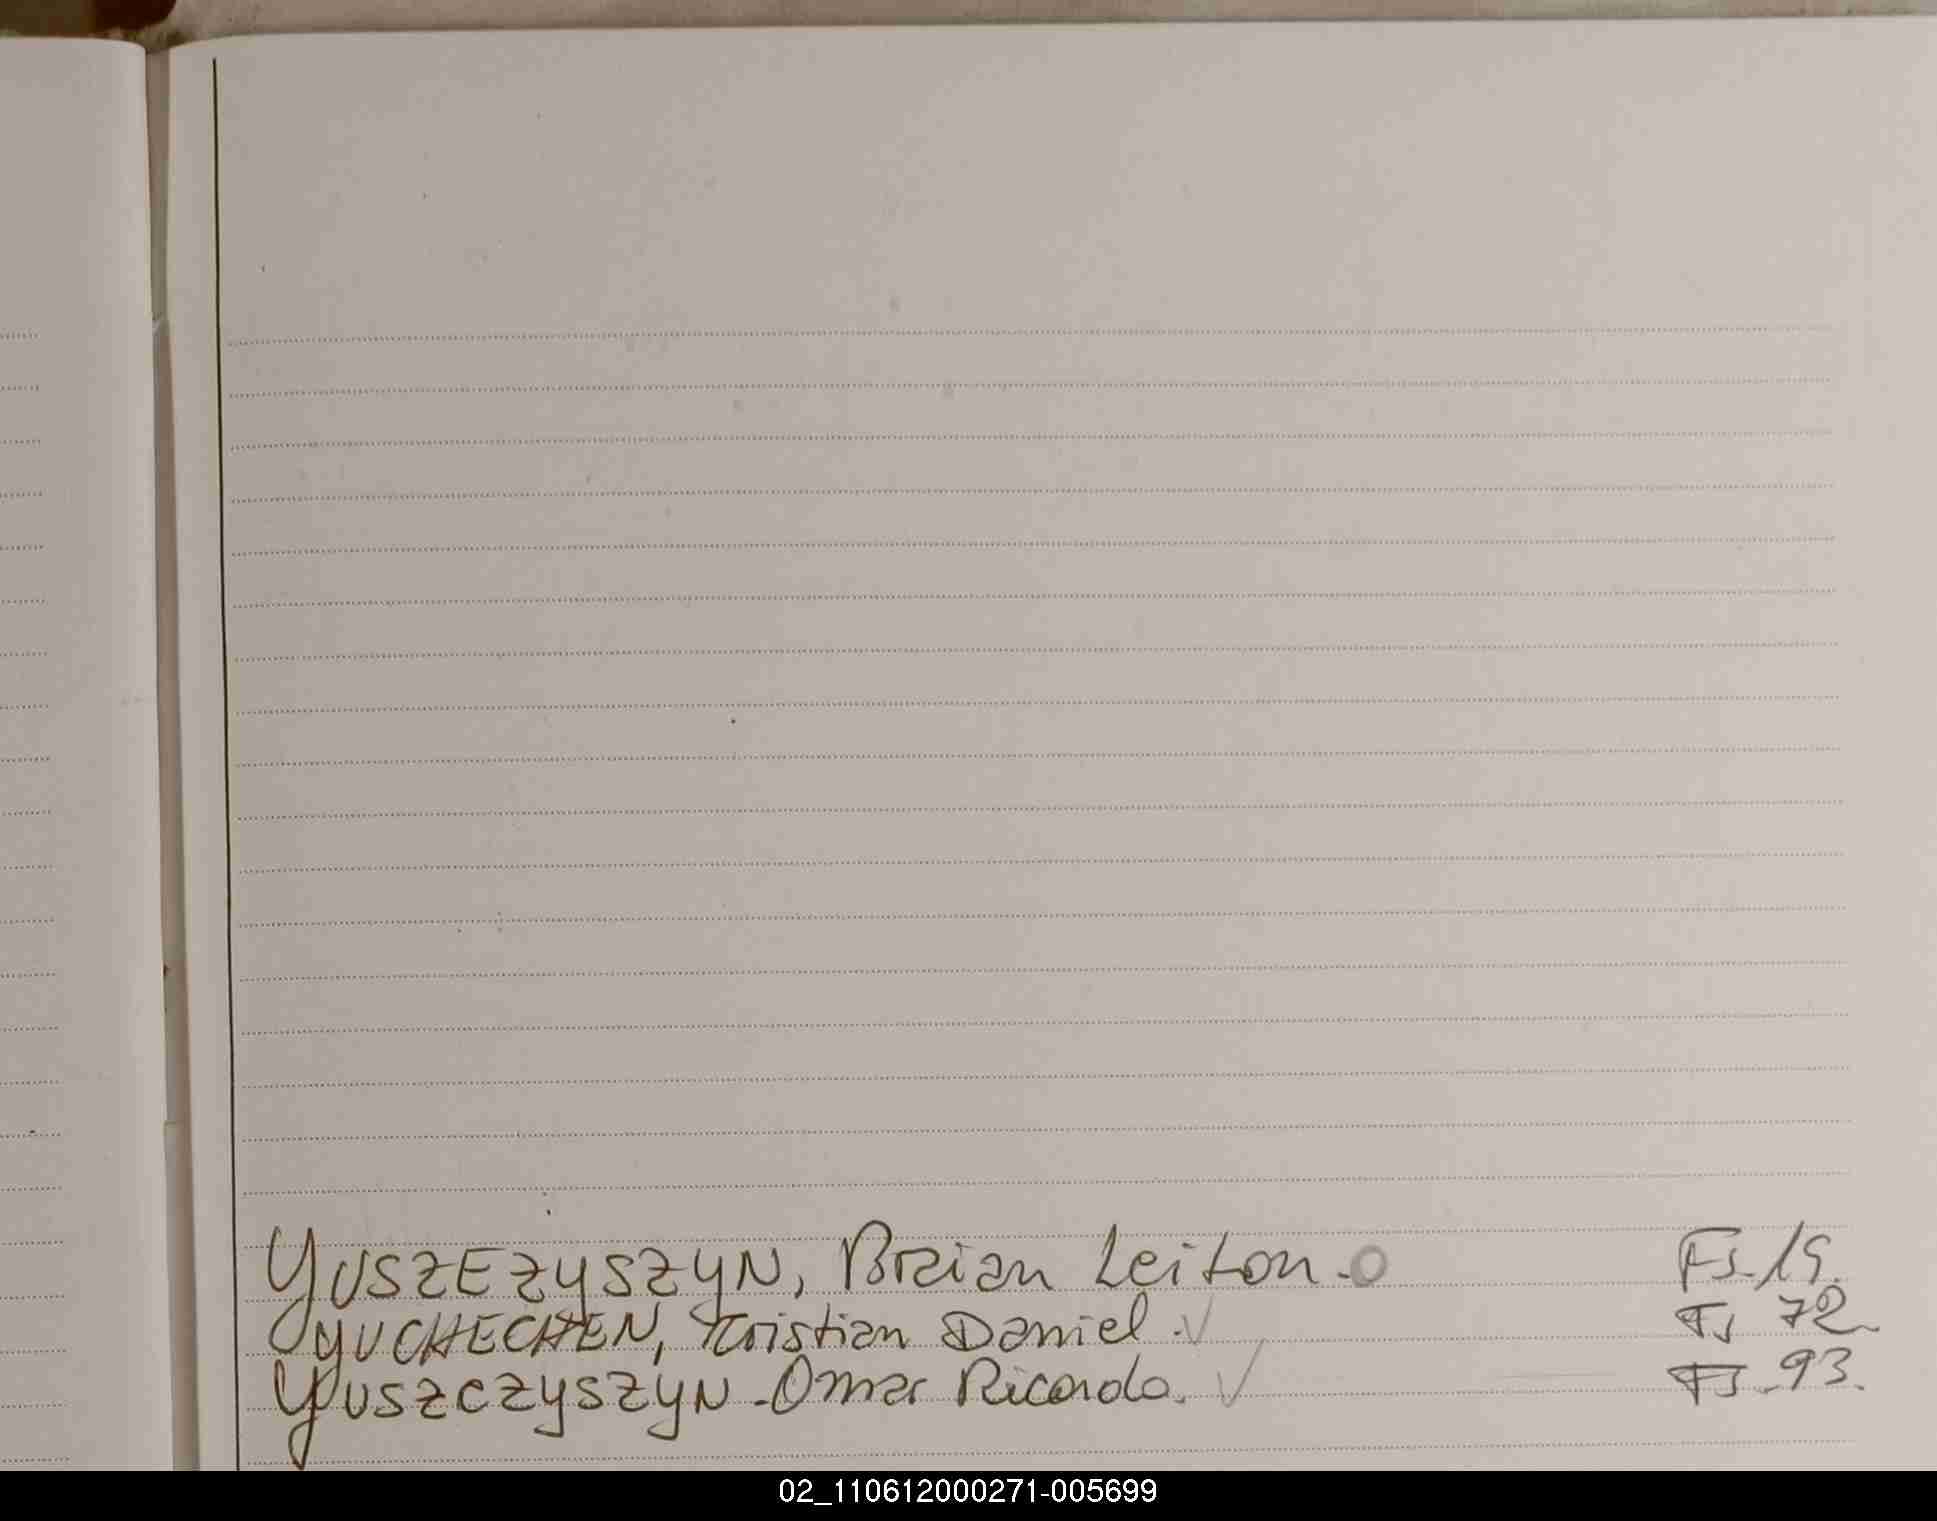 YUSZEZYSZYN, Braian Leiton. O Fs. 19.
YUCHECHEN, Kristian Daniel. ✓ Fs 72
YUSZCZYSZYN - Omar Ricardo. ✓ Fs. 93.
02_110612000271-005699